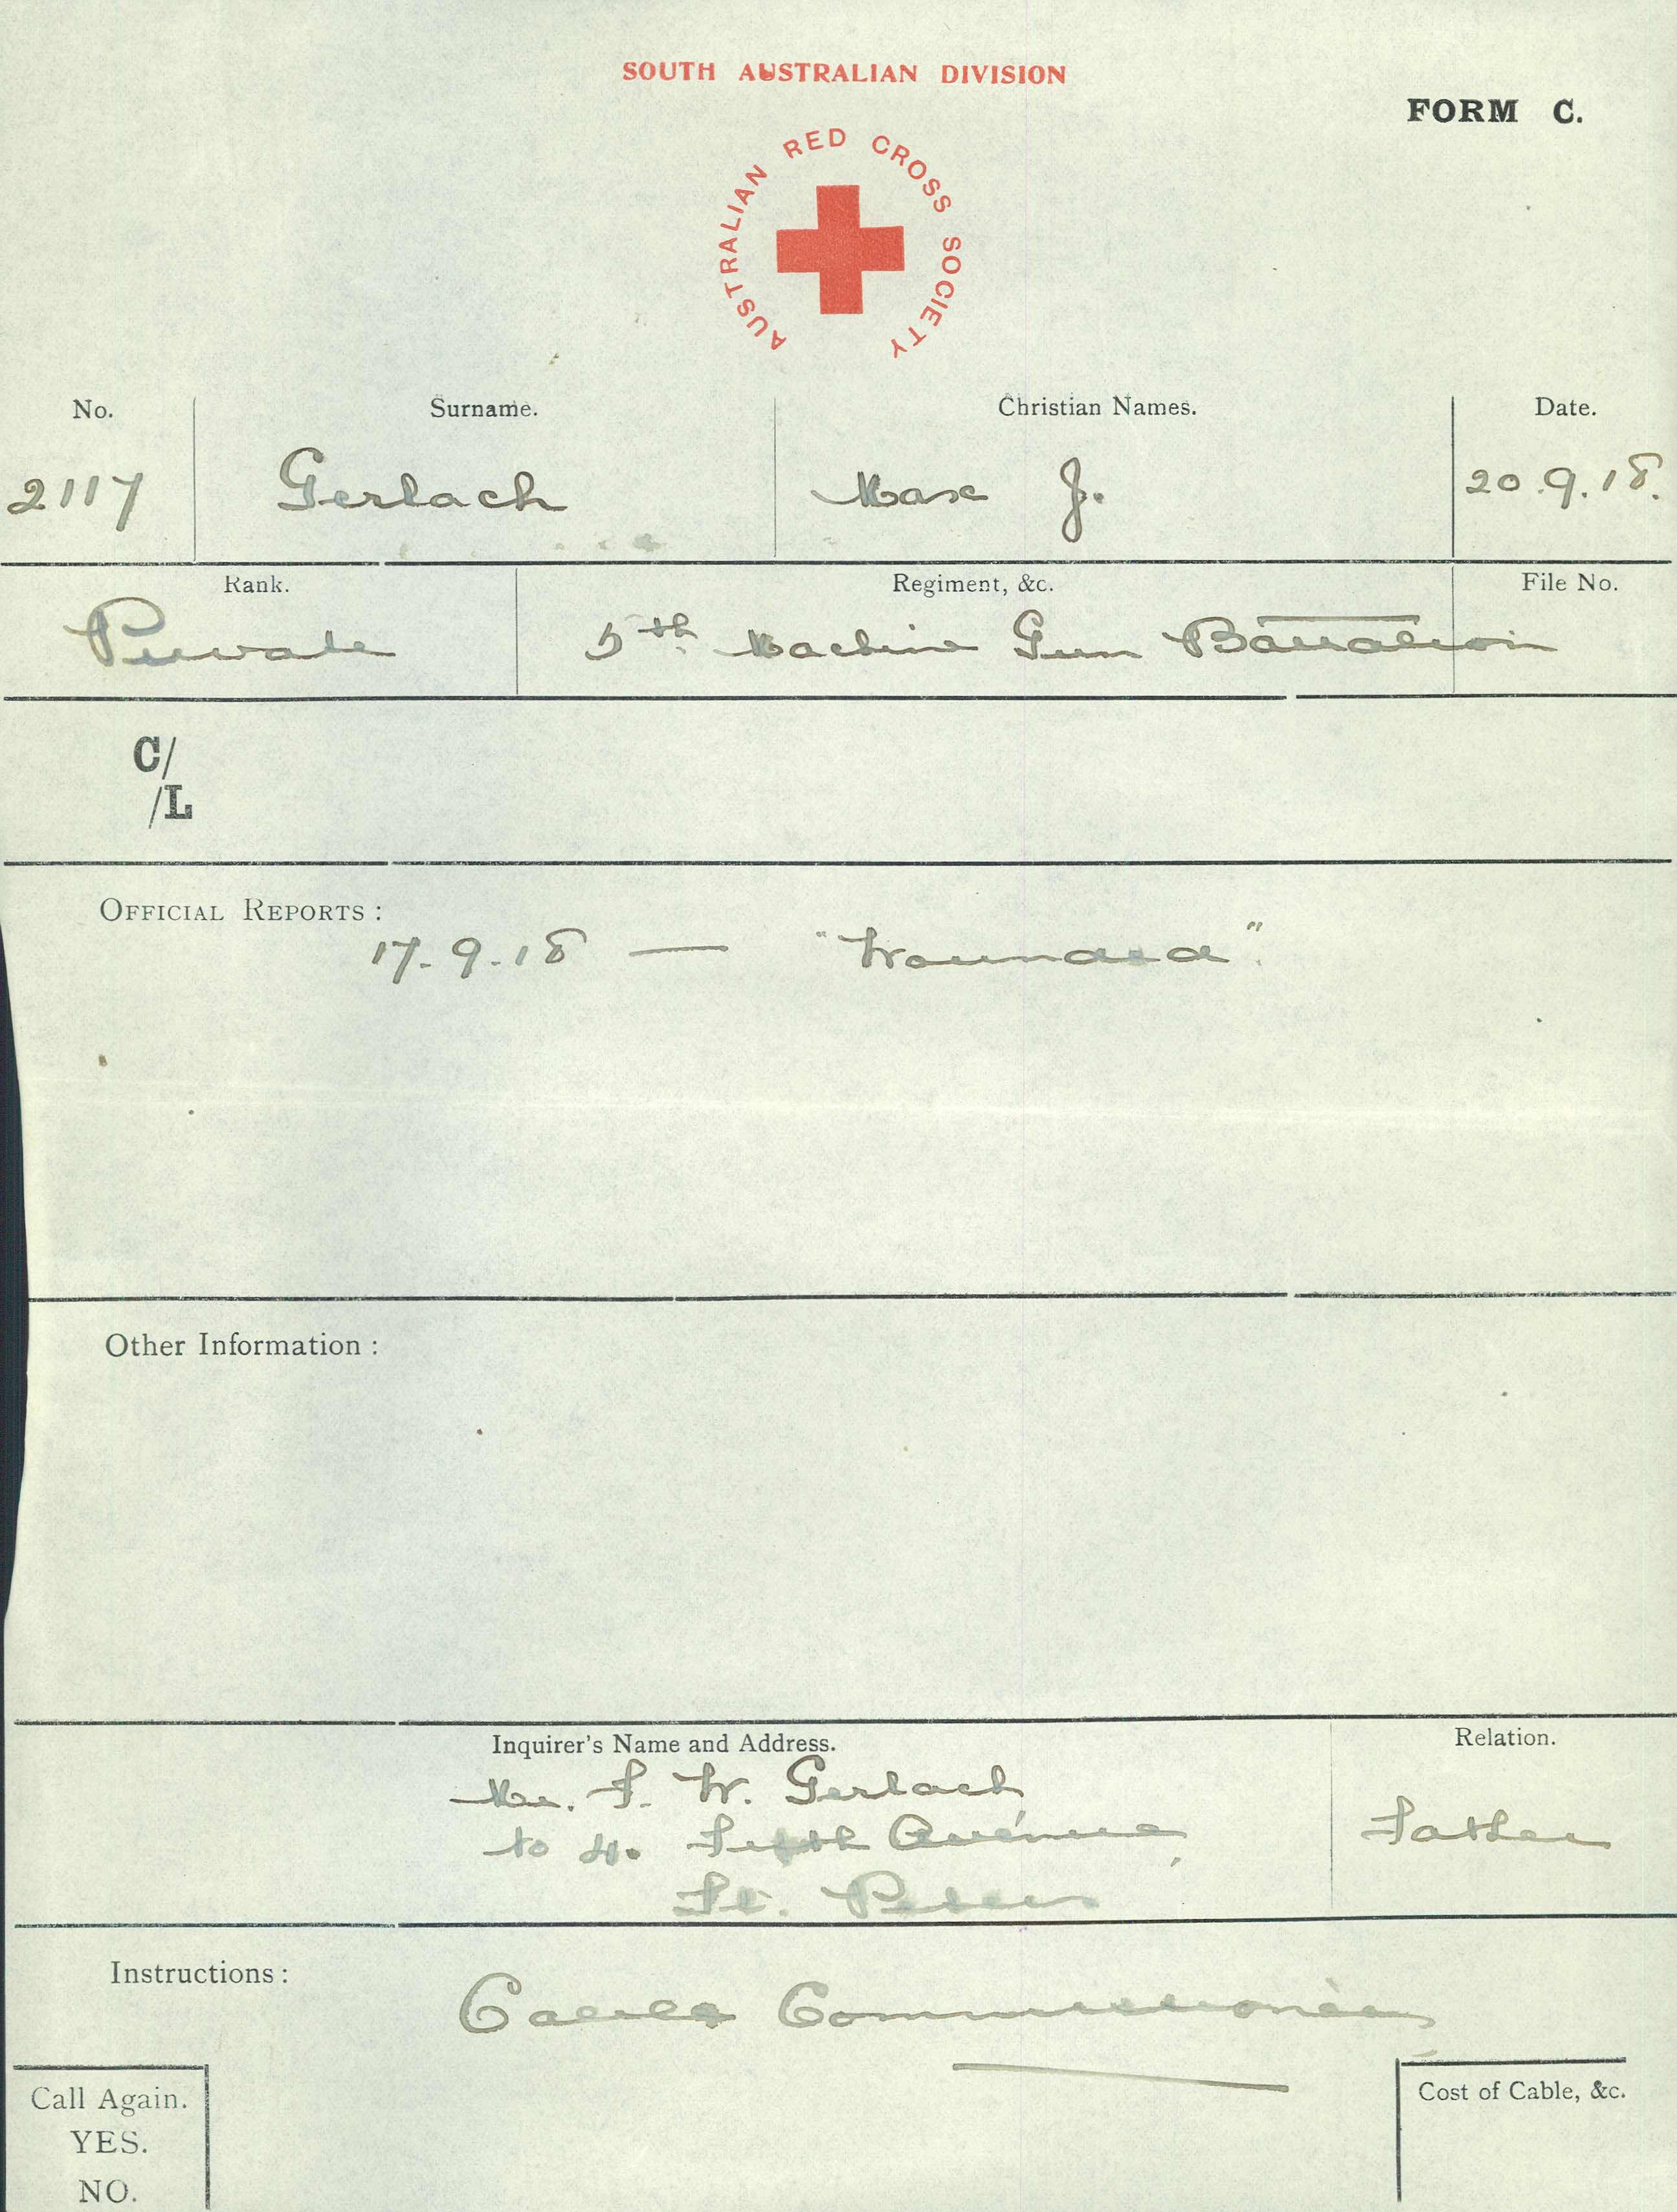 SOUTH AUSTRALIAN DIVISION
FORM C.
AUSTRALIAN RED CROSS SOCIETY
No. Surname. Christian Names. Date.
2117 Gerlach Max J. 20.9.18.
Rank. Regiment, &c. File No.
Private 5th Machine Gun Battalion
C/
/L
OFFICIAL REPORTS :
17.9.18 — "Wounded".
Other Information :
Inquirer's Name and Address. Relation.
Mr. F. W. Gerlach,
to 4. Fifth Avenue,
St. Peters
Father
Instructions :
Cable Commissioner
Call Again.
YES.
NO.
Cost of Cable, &c.